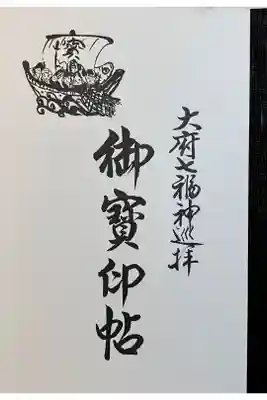 大府七福神巡拝
御寳印帖